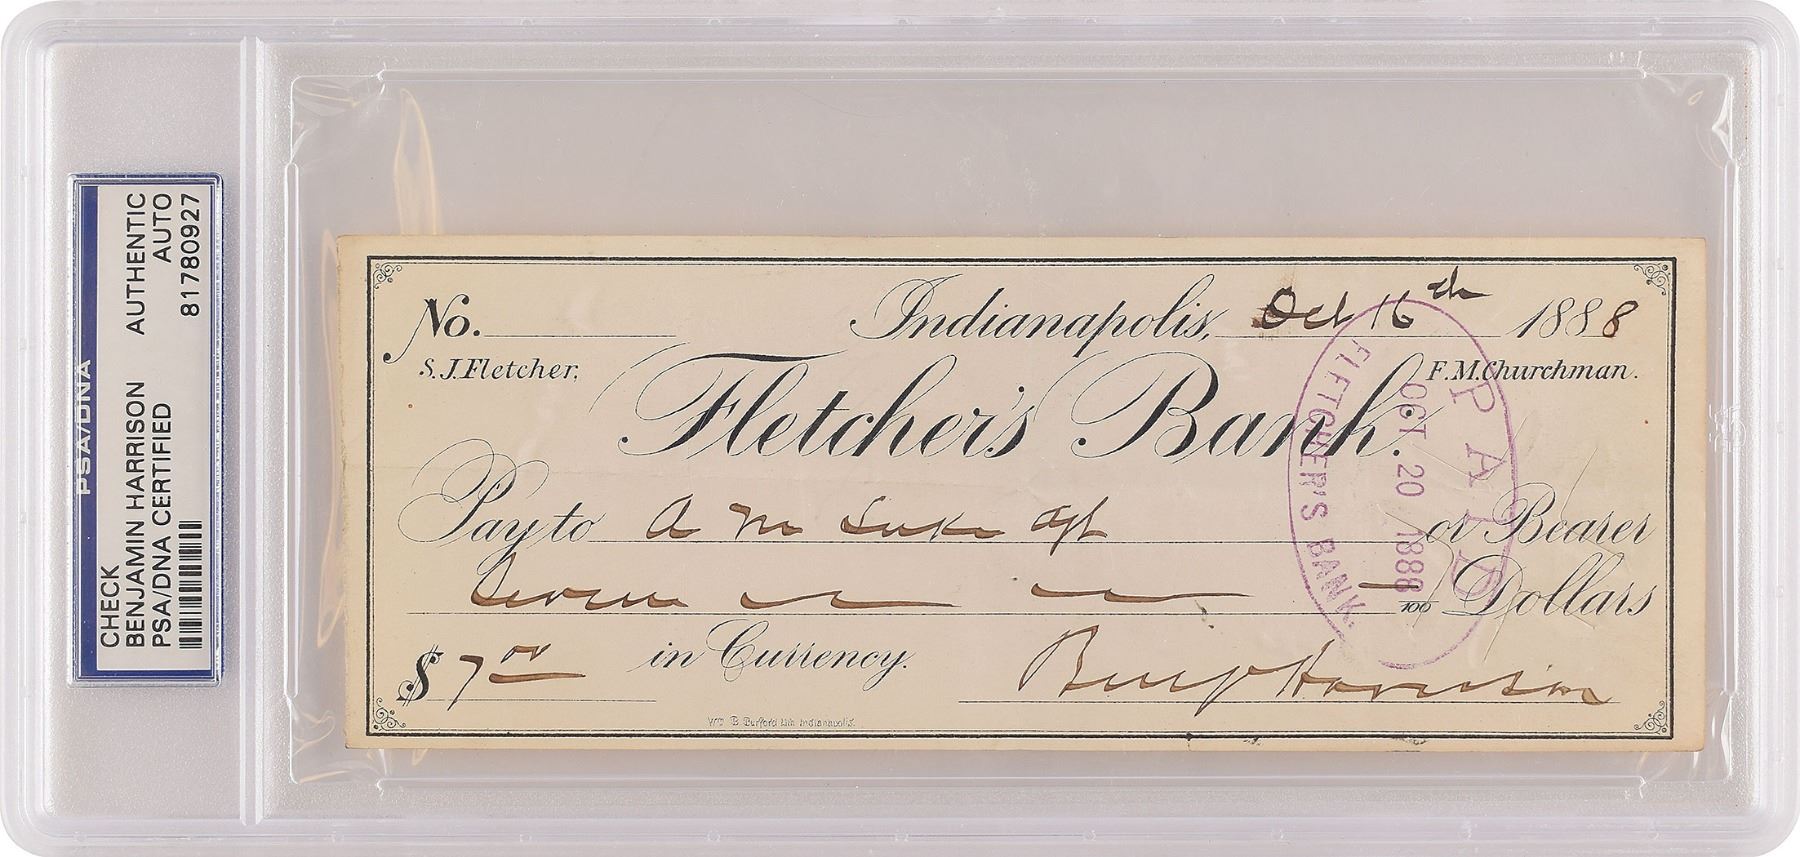 PSA/DNA
CHECK
BENJAMIN HARRISON AUTHENTIC
PSA/DNA CERTIFIED AUTO
81780927
No. Indianapolis, Oct 16th 1888
S. J. Fletcher. F. M. Churchman.
Fletcher's Bank.
Pay to A M or Bearer
Seven 100 Dollars
$ 7 00 in Currency.
Benj Harrison
Wm B. Burford Lith Indianapolis.
PAID
OCT. 20 1888
FLETCHER'S BANK.